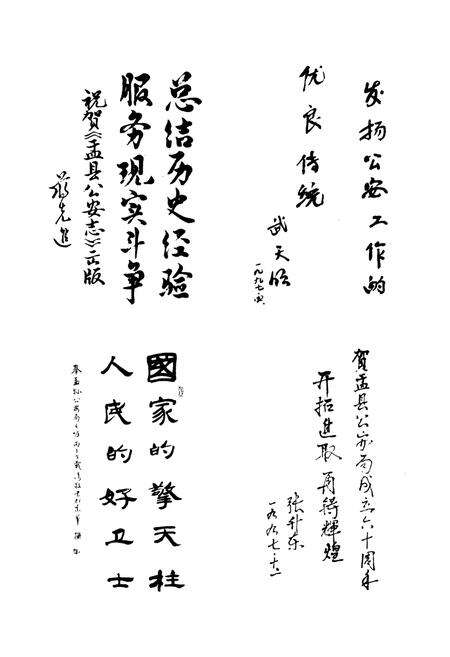 发扬公安工作的
优良传统
总结历史经验
服务现实斗争
祝贺《盂县公安志》出版
贺盂县公安局成立六十周年
开拓进取 再铸輝煌
张升东
一九九七·十二
國家的擎天柱
人民的好卫士